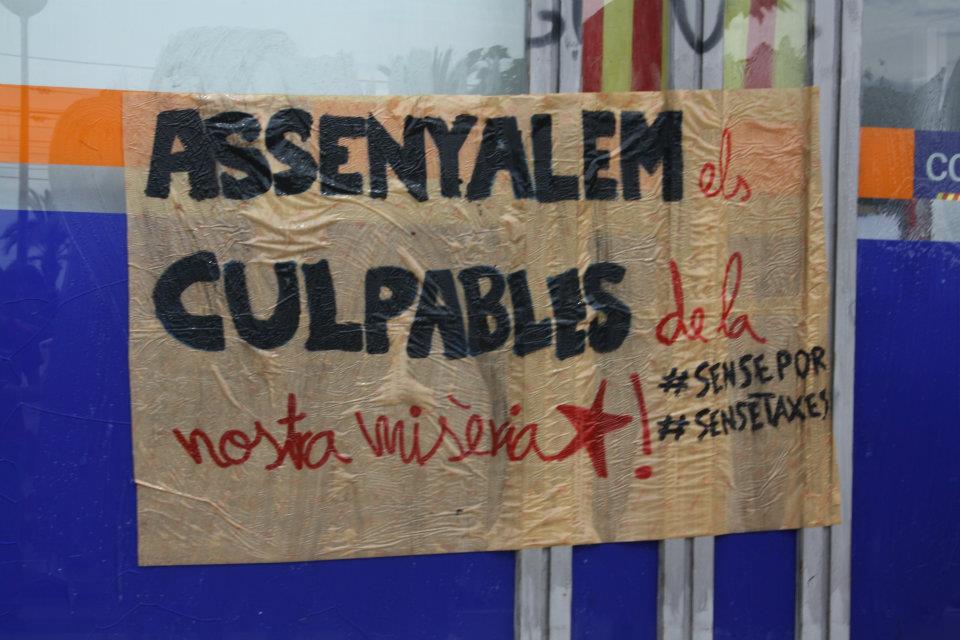 ASSENYALEM els
CULPABLES de la
nostra misèria ★!
#SENSEPOR
#SENSETAXES
CO